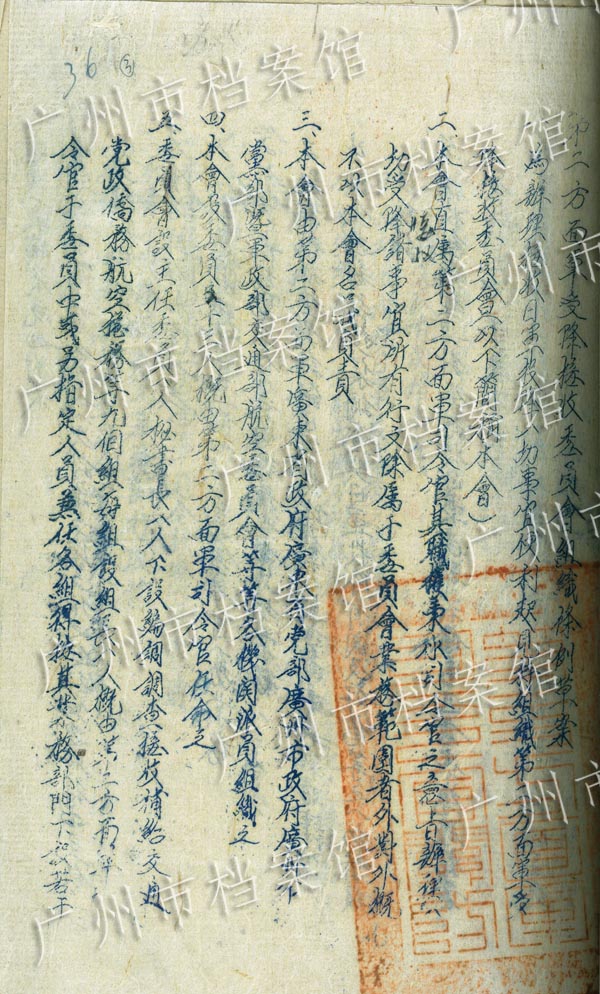 第二方面軍受降接收委員會組織條例草案
為辦理接收日軍投降一切事宜便利起見特組織第二方面軍受
降接收委員會(以下簡稱本會)
二、本會直属第二方面軍司令官其職權秉承司令官之意旨辦理一
切受降接收諸事宜所有行文除属于委員會業務範圍者外對外概
不以本會名義
三、本會由第二方面軍廣東省政府廣東省党部廣州市政府廣州市
黨部暨軍政部交通部航空委員會等等各機関派員組織之
四、本會設委員 人概由第二方面軍司令官任命之
五、委員會設主任委員 人秘書長一人下設編調調查接收補給交通
党政僑務航空 務等九個組每組設組長一人概由第二方面軍司
令官于委員中或另指定人員兼任各組得按其業務部門下設若干
36
广州市档案馆